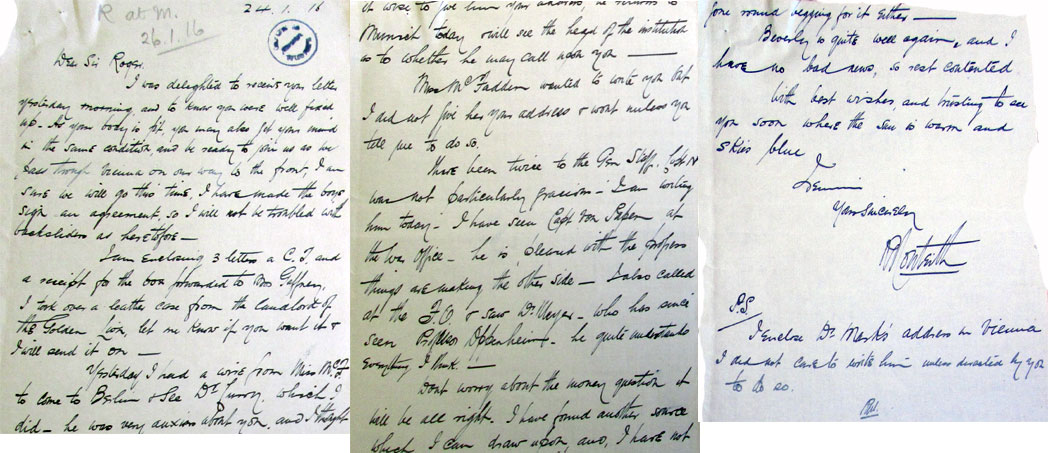 R at M.
26.1.16
24.1.16
Dear Sir Roger.
I was delighted to receive your letter
yesterday morning, and to know you were well fixed
up. As your body is fit, you may also get your mind
in the same condition, and be ready to join us as we
pass through Vienna on our way to the front, I am
sure we will go this time, I have made the boys
sign an agreement, so I will not be troubled with
backsliders as heretofore —
I am Enclosing 3 letters a C.T. and
a receipt for the box forwarded to Mrs Gaffney,
I took over a leather case from the Landlord of
the Golden Lion, let me know if you want it &
I will send it on —
Yesterday I had a wire from Miss McF
to come to Berlin & See Dr Curry, which I
did — he was very anxious about you, and I thought
it wise to give him your address, he returns to
Munich today & will see the head of the institution
as to whether he may call upon you —
Miss McFadden wanted to write you but
I did not give her your address & wont unless you
tell me to do so.
Have been twice to the Gen Staff.
was not particularly gracious — I am writing
him today — I have seen Capt von Papen at
the War Office — he is pleased with the progress
things are making the other side — I also called
at the F.O & saw Dr Meyer — who has since
seen Professor Oppenheim — he quite understands
Everything I think. —
Dont worry about the money question it
will be all right. I have found another source
which I can draw upon, and, I have not
gone round begging for it Either —
Beverly is quite well again, and I
have no bad news, so rest contented.
With best wishes, and trusting to see
you soon where the sun is warm and
skies blue
I remain
Yours Sincerely
R Monteith
P.S.
I enclose Dr Mark's address in Vienna
I did not care to write him unless directed by you
to do so.
RM.